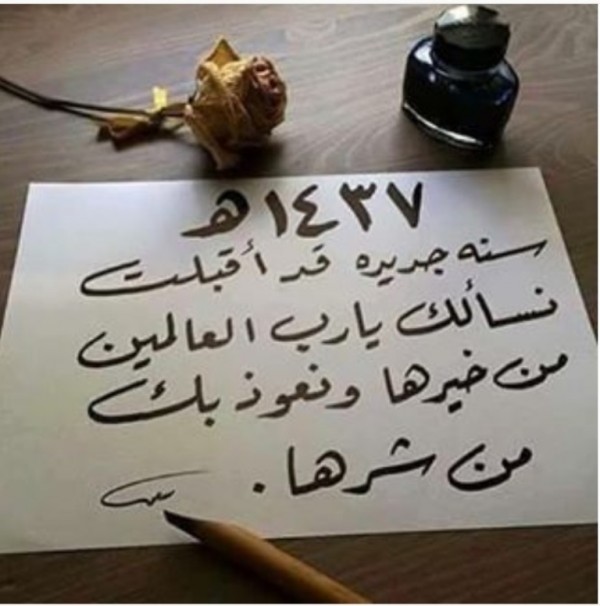 ١٤٣٧هـ
سنه جديده قد أقبلت
نسألك يارب العالمين
من خيرها ونعوذ بك
من شرها.